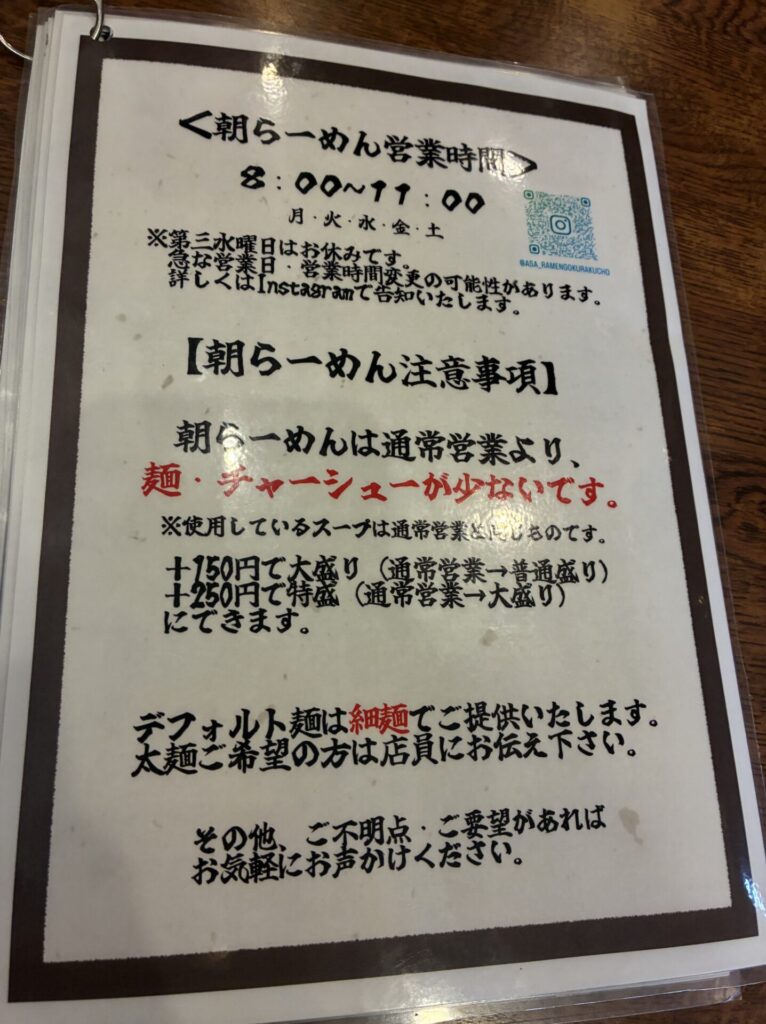 <朝らーめん営業時間>
8:00~11:00
月・火・水・金・土
@ASA_RAMENGOKURAKUCHO
※第三水曜日はお休みです。
急な営業日・営業時間変更の可能性があります。
詳しくはInstagramで告知いたします。
【朝らーめん注意事項】
朝らーめんは通常営業より、
麺・チャーシューが少ないです。
※使用しているスープは通常営業と同じものです。
+150円で大盛り(通常営業→普通盛り)
+250円で特盛(通常営業→大盛り)
にできます。
デフォルト麺は細麺でご提供いたします。
太麺ご希望の方は店員にお伝え下さい。
その他、ご不明点・ご要望があれば
お気軽にお声かけください。